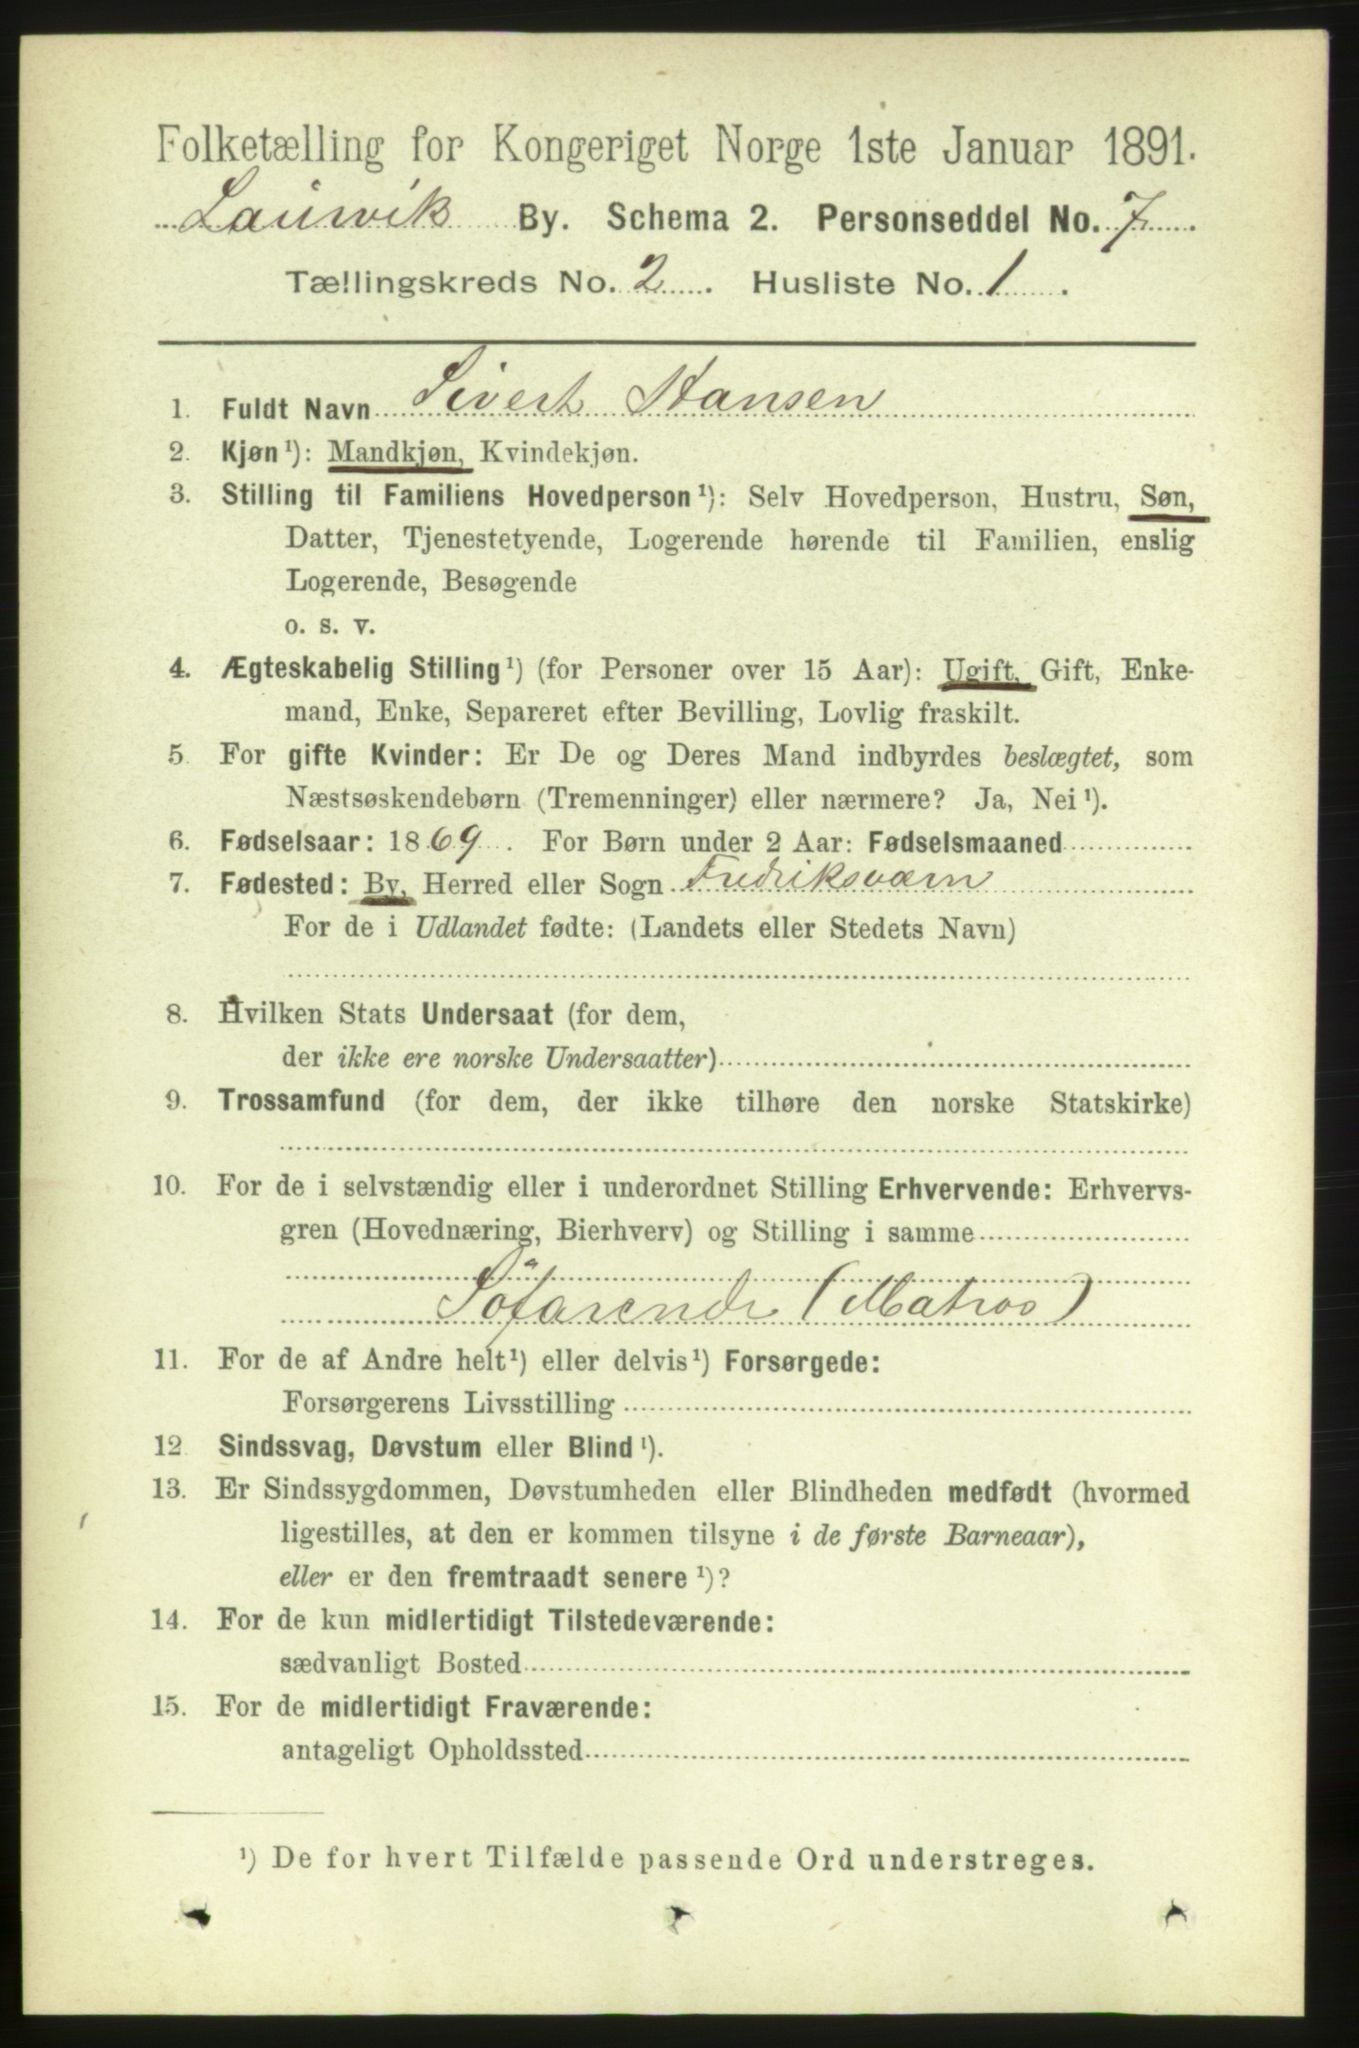 Folketælling for Kongeriget Norge 1ste Januar 1891.
Laurvik By. Schema 2. Personseddel No. 7
Tællingskreds No. 2. Husliste No. 1.
1. Fuldt Navn Sivert Hansen
2. Kjøn¹): Mandkjøn, Kvindekjøn.
3. Stilling til Familiens Hovedperson¹): Selv Hovedperson, Hustru, Søn,
Datter, Tjenestetyende, Logerende hørende til Familien, enslig
Logerende, Besøgende
o. s. v.
4. Ægteskabelig Stilling¹) (for Personer over 15 Aar): Ugift, Gift, Enke-
mand, Enke, Separeret efter Bevilling, Lovlig fraskilt.
5. For gifte Kvinder: Er De og Deres Mand indbyrdes beslægtet, som
Næstsøskendebørn (Tremenninger) eller nærmere? Ja, Nei¹).
6. Fødselsaar: 1869. For Børn under 2 Aar: Fødselsmaaned
7. Fødested: By, Herred eller Sogn Fredriksværn
For de i Udlandet fødte: (Landets eller Stedets Navn)
8. Hvilken Stats Undersaat (for dem,
der ikke ere norske Undersaatter)
9. Trossamfund (for dem, der ikke tilhøre den norske Statskirke)
10. For de i selvstændig eller i underordnet Stilling Erhvervende: Erhvervs-
gren (Hovednæring, Bierhverv) og Stilling i samme
Söfarende (Matros)
11. For de af Andre helt¹) eller delvis¹) Forsørgede:
Forsørgerens Livsstilling
12. Sindssvag, Døvstum eller Blind¹).
13. Er Sindssygdommen, Døvstumheden eller Blindheden medfødt (hvormed
ligestilles, at den er kommen tilsyne i de første Barneaar),
eller er den fremtraadt senere¹)?
14. For de kun midlertidigt Tilstedeværende:
sædvanligt Bosted
15. For de midlertidigt Fraværende:
antageligt Opholdssted
¹) De for hvert Tilfælde passende Ord understreges.